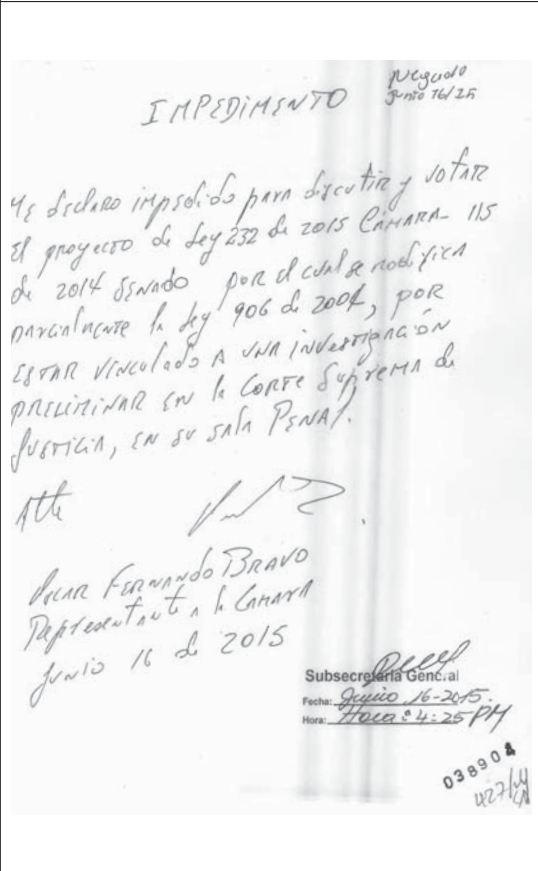 Negado
Junio 16/15
IMPEDIMENTO
Me declaro impedido para discutir y votar
el proyecto de Ley 232 de 2015 Cámara - 115
de 2014 Senado por el cual se modifica
parcialmente la ley 906 de 2004, por
estar vinculado a una investigación
preliminar en la Corte Suprema de
Justicia, en su sala Penal.
Atte
Oscar Fernando Bravo
Representante a la Camara
Junio 16 de 2015
Subsecretaría General
Fecha: Junio 16-2015.
Hora: Hora: 4:25 PM
038904